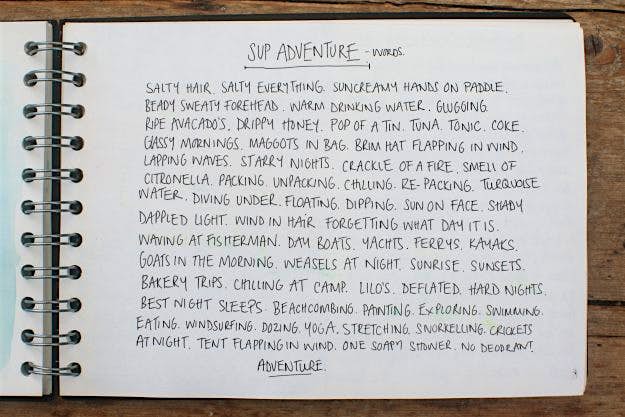 SUP ADVENTURE - WORDS.
SALTY HAIR. SALTY EVERYTHING. SUNCREAMY HANDS ON PADDLE.
BEADY SWEATY FOREHEAD. WARM DRINKING WATER. GLUGGING.
RIPE AVACADO'S. DRIPPY HONEY. POP OF A TIN. TUNA. TONIC. COKE.
GLASSY MORNINGS. MAGGOTS IN BAG. BRIM HAT FLAPPING IN WIND.
LAPPING WAVES. STARRY NIGHTS. CRACKLE OF A FIRE. SMELL OF
CITRONELLA. PACKING. UNPACKING. CHILLING. RE-PACKING. TURQUOISE
WATER. DIVING UNDER. FLOATING. DIPPING. SUN ON FACE. SHADY
DAPPLED LIGHT. WIND IN HAIR FORGETTING WHAT DAY IT IS.
WAVING AT FISHERMAN. DAY BOATS. YACHTS. FERRYS. KAYAKS.
GOATS IN THE MORNING. WEASELS AT NIGHT. SUNRISE. SUNSETS.
BAKERY TRIPS. CHILLING AT CAMP. LILO'S. DEFLATED. HARD NIGHTS.
BEST NIGHT SLEEPS. BEACHCOMBING. PAINTING. EXPLORING. SWIMMING.
EATING. WINDSURFING. DOZING. YOGA. STRETCHING. SNORKELLING. CRICKETS
AT NIGHT. TENT FLAPPING IN WIND. ONE SOAPY SHOWER. NO DEODRANT.
ADVENTURE.